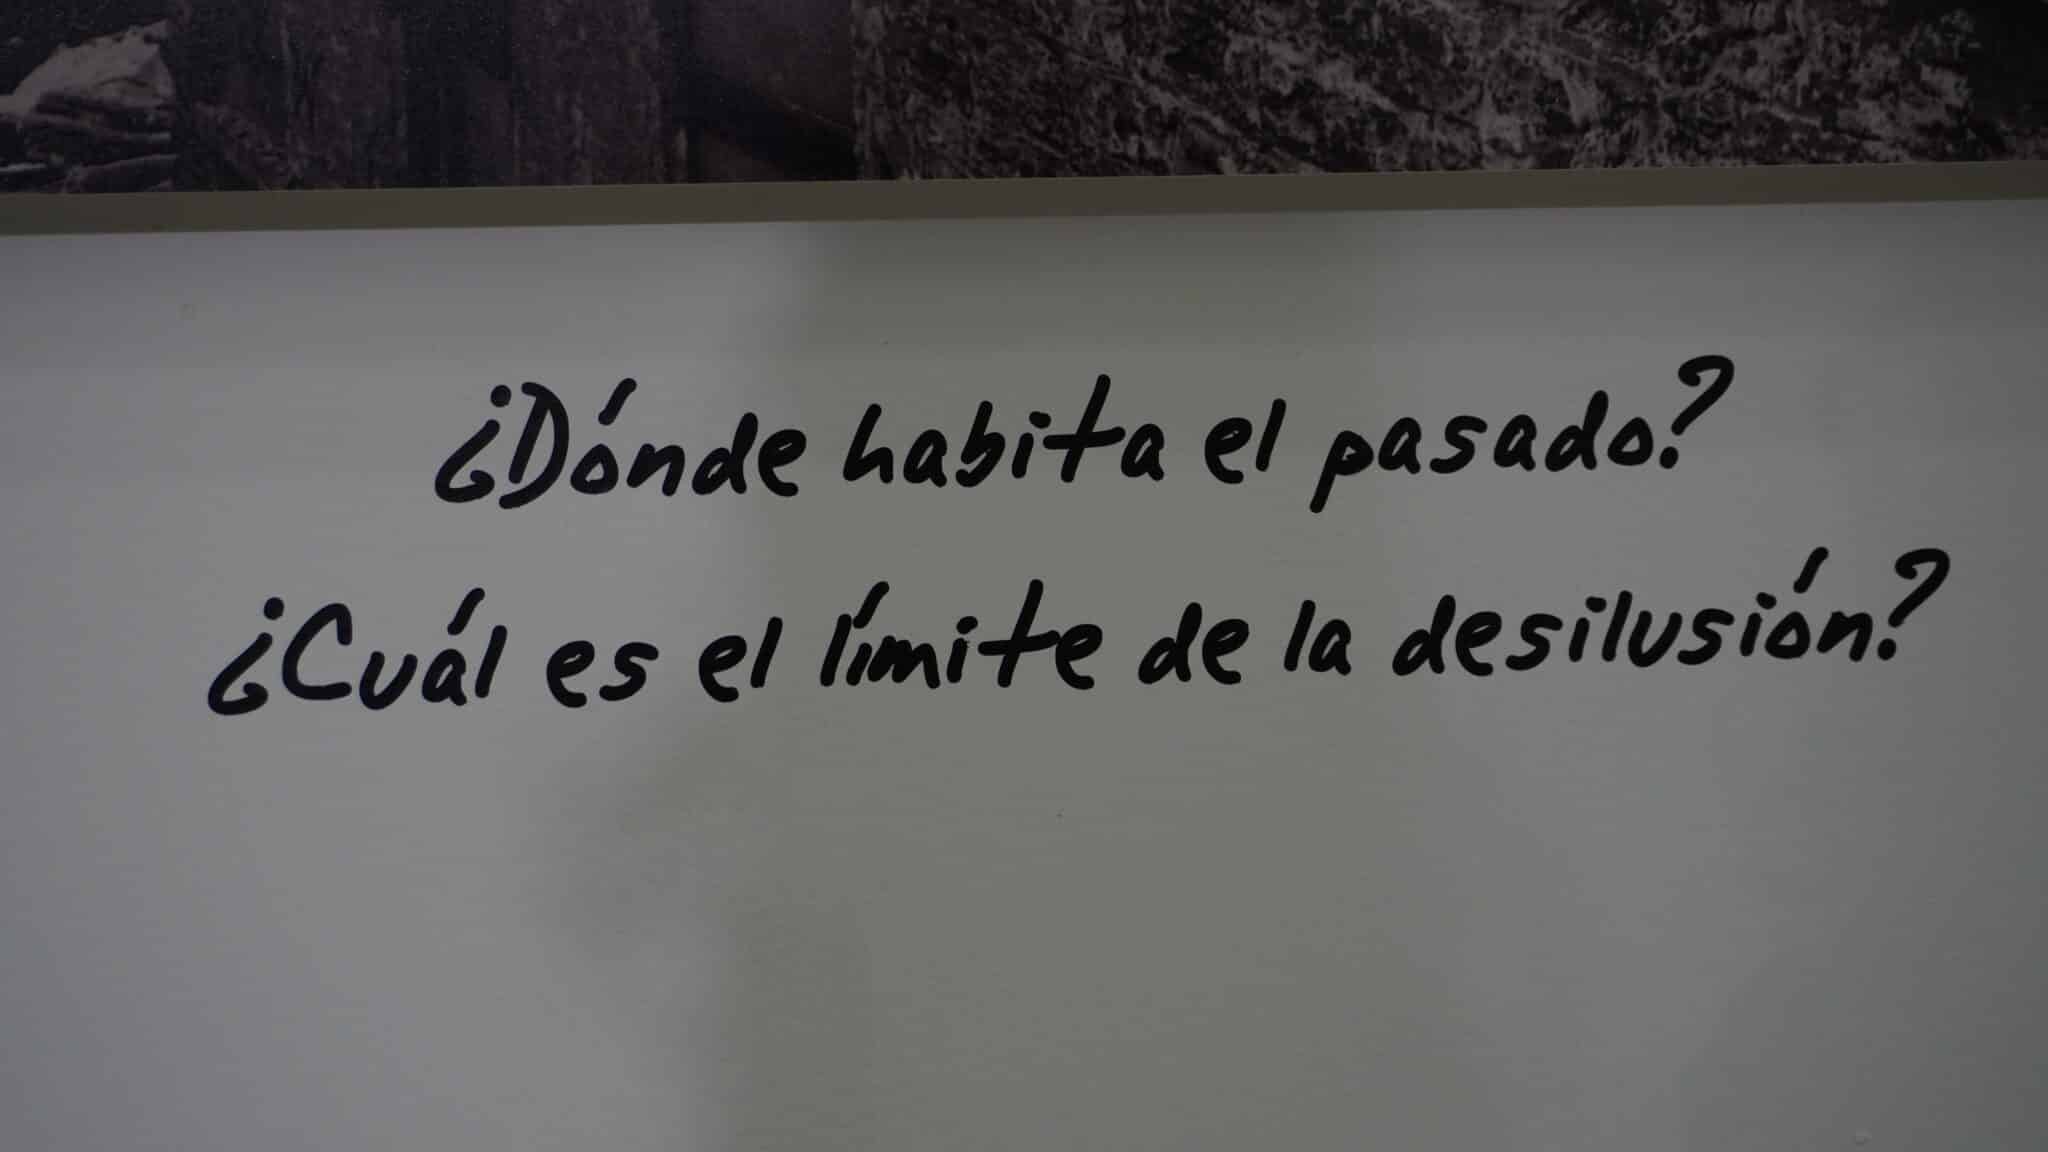 ¿Dónde habita el pasado?
¿Cuál es el límite de la desilusión?